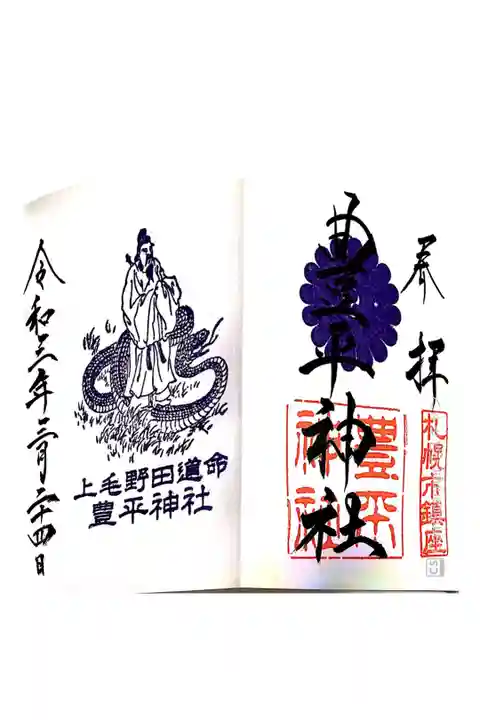 奉拝
札幌市鎮座
豊平神社
豊平
神社
上毛野田道命
豊平神社
令和三年三月二十四日